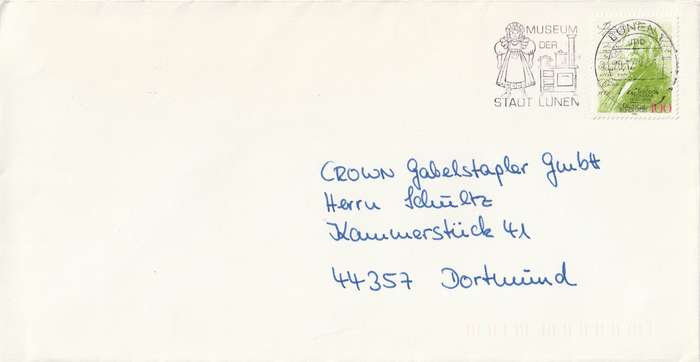 MUSEUM
DER
STADT LÜNEN
LÜNEN
100
CROWN Gabelstapler GmbH
Herrn Schultz
Kammerstück 41
44357 Dortmund